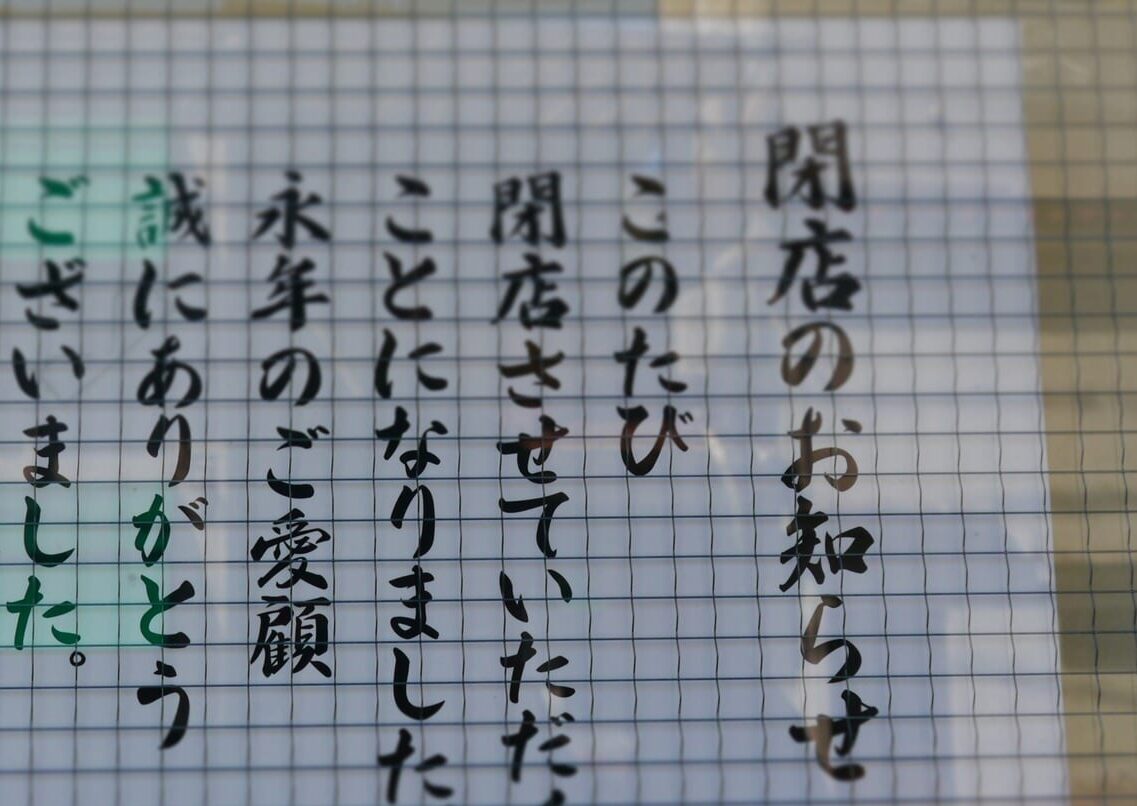 閉店のお知らせ
このたび
閉店させていただ
ことになりました
永年のご愛顧
誠にありがとう
ございました。